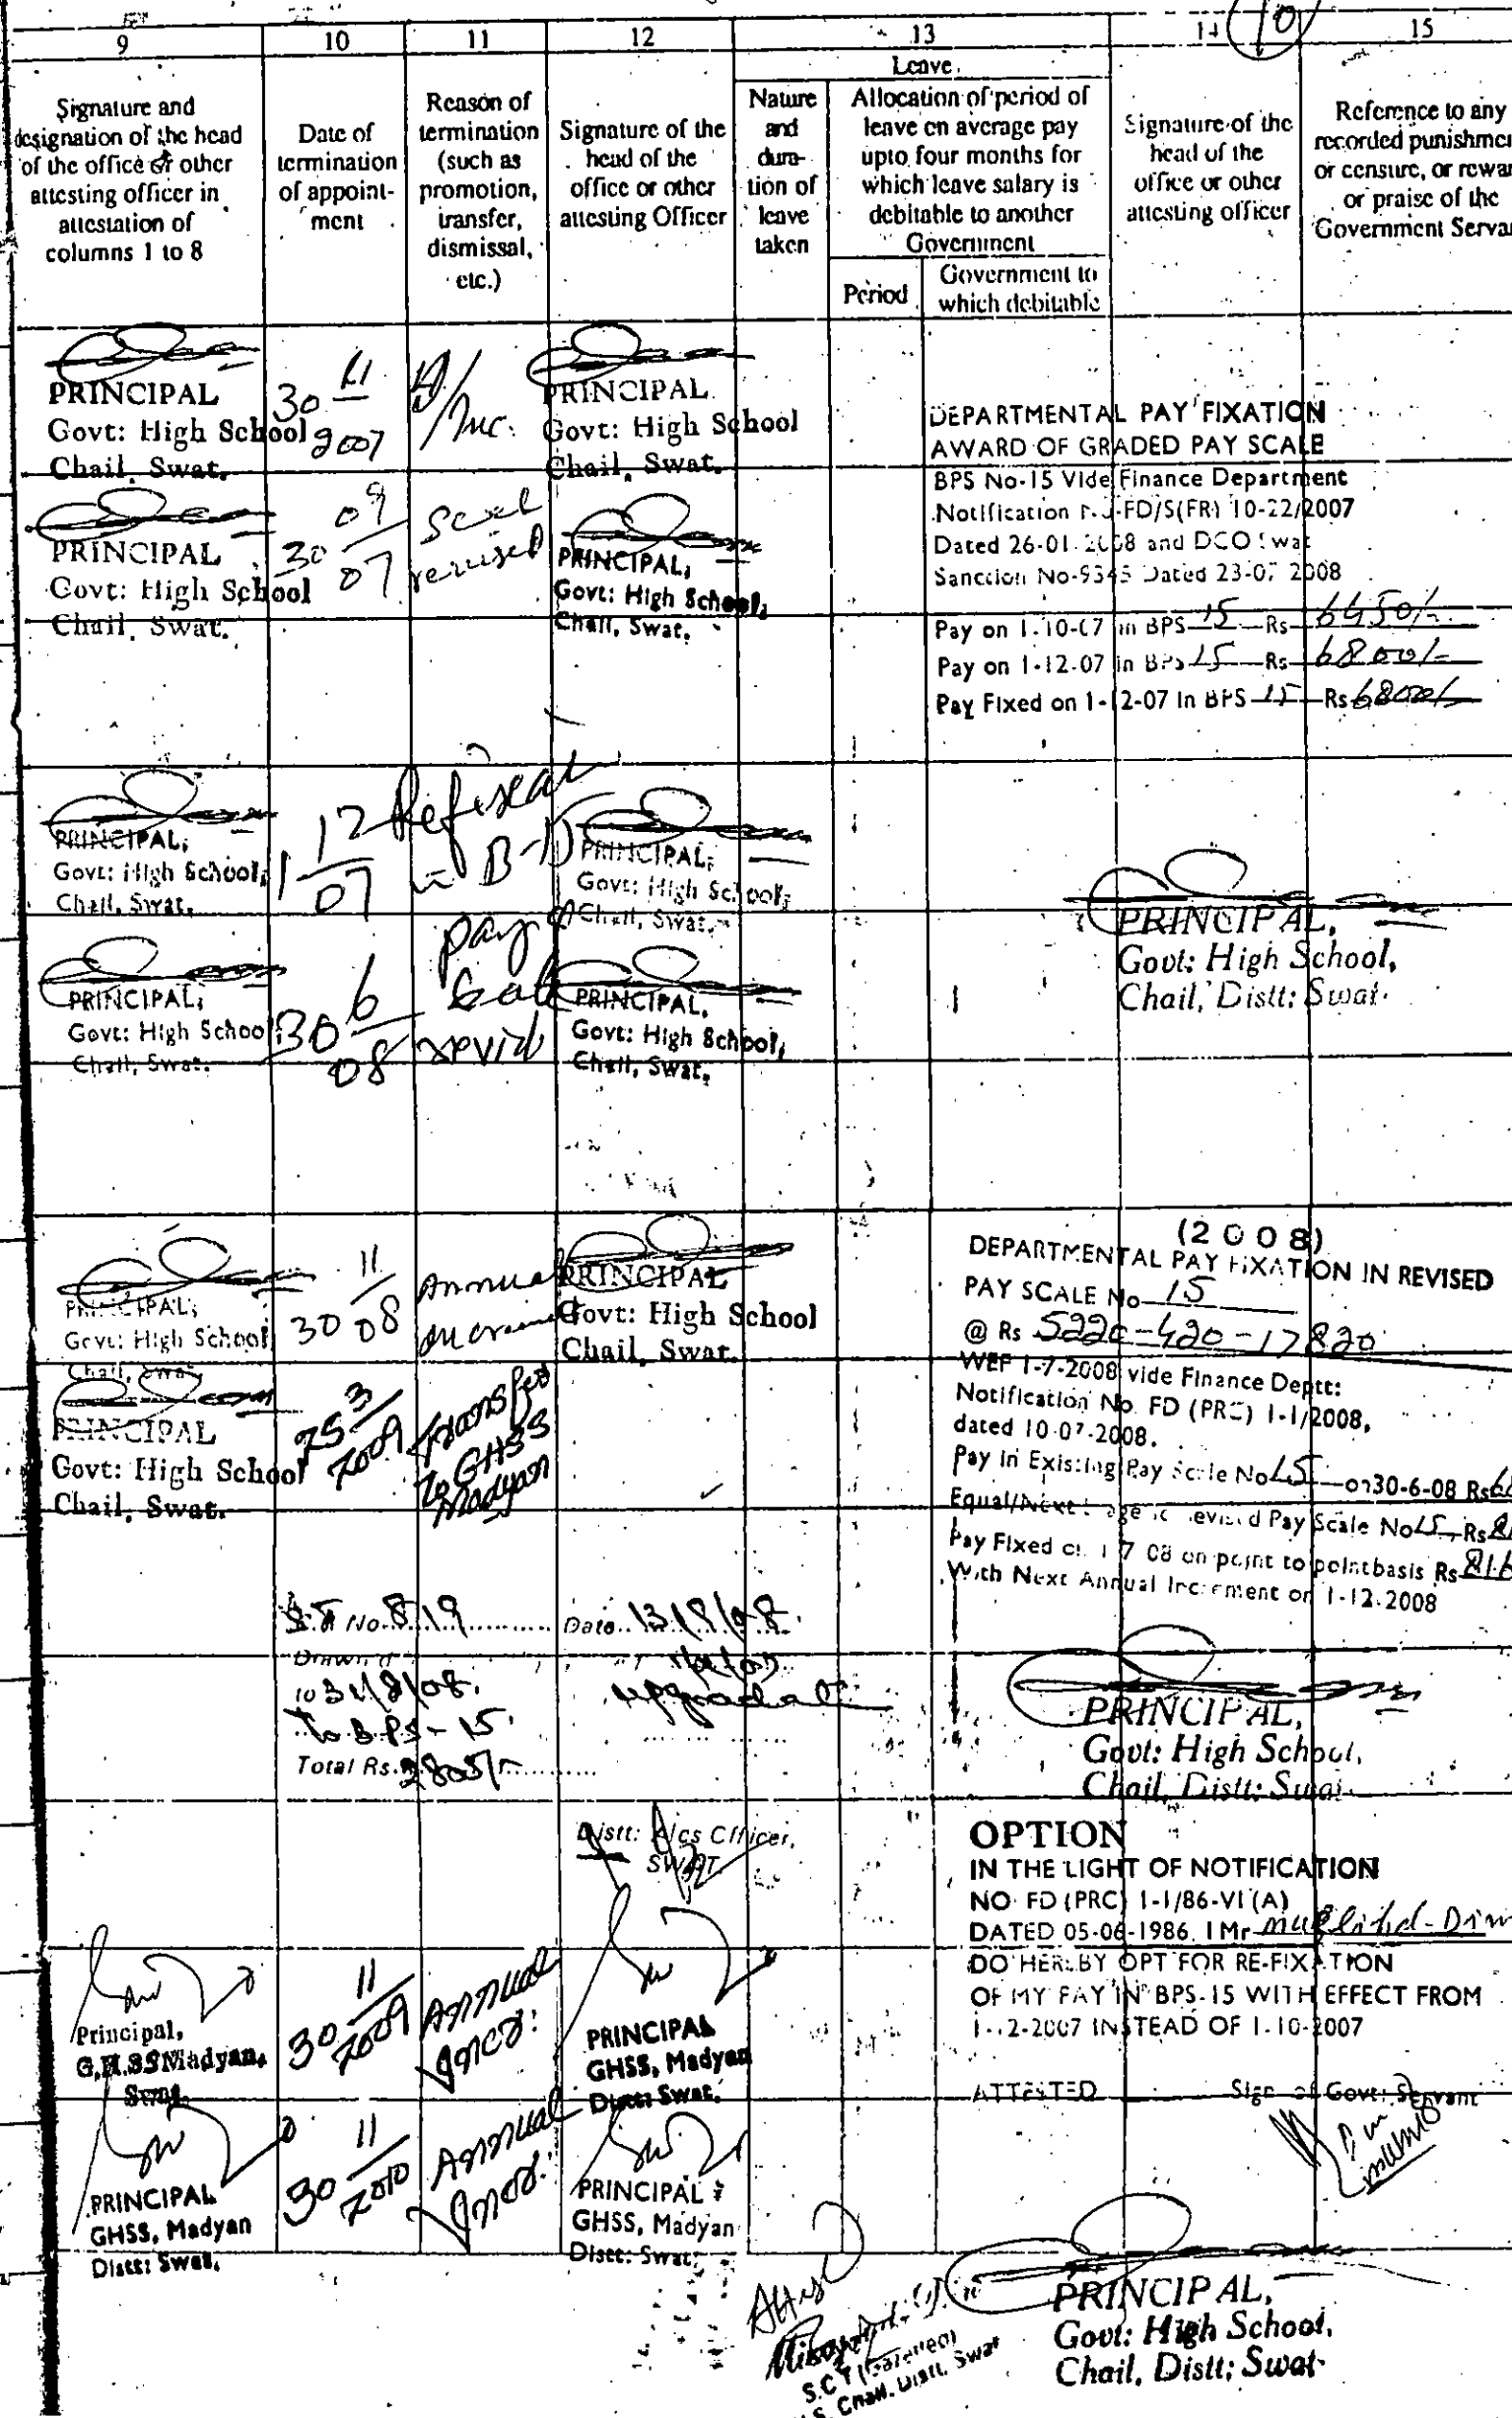 9 10 11 12 13 14 10 15
Signature and
designation of the head
of the office or other
attesting officer in
attestation of
columns 1 to 8
Date of
termination
of appoint-
ment
Reason of
termination
(such as
promotion,
transfer,
dismissal,
etc.)
Signature of the
head of the
office or other
attesting Officer
Leave
Nature
and
dura-
tion of
leave
taken
Allocation of period of
leave on average pay
upto four months for
which leave salary is
debitable to another
Government
Period
Government to
which debitable
Signature of the
head of the
office or other
attesting officer
Reference to any
recorded punishme
or censure, or rewar
or praise of the
Government Serva
PRINCIPAL
Govt: High School
Chail, Swat.
30 11
2007
Inc.
PRINCIPAL
Govt: High School
Chail, Swat.
DEPARTMENTAL PAY FIXATION
AWARD OF GRADED PAY SCALE
BPS No-15 Vide Finance Department
Notification FD/S(FR) 10-22/2007
Dated 26-01-2008 and DCO Swat
Sanction No-9345 Dated 23-07 2008
Pay on 1-10-07 in BPS 15 Rs 6450/-
Pay on 1-12-07 in BPS 15 Rs 6800/-
Pay Fixed on 1-12-07 In BPS 15 Rs 6800/-
PRINCIPAL
Govt: High School
Chail, Swat.
30 09
07
Scal
revised
PRINCIPAL,
Govt: High School,
Chail, Swat.
PRINCIPAL,
Govt: High School,
Chail, Swat.
1 12
07
in B-15
PRINCIPAL,
Govt: High School,
Chail, Swat.
PRINCIPAL,
Govt: High School,
Chail, Distt: Swat.
PRINCIPAL,
Govt: High School
Chail, Swat.
30 6
08
pay
PRINCIPAL,
Govt: High School,
Chail, Swat.
PRINCIPAL,
Govt: High School
Chail, Swat
30 11
08
Annual
PRINCIPAL
Govt: High School
Chail, Swat.
(2008)
DEPARTMENTAL PAY FIXATION IN REVISED
PAY SCALE No 15
@ Rs 5220-420-17820
WEF 1-7-2008 vide Finance Deptt:
Notification No. FD (PRC) 1-1/2008,
dated 10-07-2008.
Pay in Existing Pay Scale No 15 on 30-6-08 Rs
Equal/Next Stage in revised Pay Scale No 15 Rs
Pay Fixed on 1 7 08 on point to point basis Rs
With Next Annual Increment on 1-12-2008
PRINCIPAL
Govt: High School
Chail, Swat.
25 3
2009
Transfer
to GHSS
Madyan
No. 819 Date 13/8/08
Drawn
to 31/8/08.
to BPS-15.
Total Rs. 2805/-
Distt: A/cs Officer,
SWAT
PRINCIPAL,
Govt: High School,
Chail, Distt: Swat.
OPTION
IN THE LIGHT OF NOTIFICATION
NO FD (PRC) 1-1/86-VI (A)
DATED 05-06-1986. I Mr
DO HEREBY OPT FOR RE-FIXATION
OF MY PAY IN BPS-15 WITH EFFECT FROM
1-12-2007 INSTEAD OF 1-10-2007
ATTESTED Sign of Govt: Servant
Principal,
G.H.SS Madyan,
Swat.
30 11
2009
Annual
Incr:
PRINCIPAL
GHSS, Madyan
Distt: Swat.
PRINCIPAL
GHSS, Madyan
Distt: Swat.
30 11
2010
Annual
Incr:
PRINCIPAL
GHSS, Madyan
Distt: Swat.
S.C.T (Gazetted)
Chail. Distt. Swat
PRINCIPAL,
Govt: High School,
Chail, Distt: Swat.